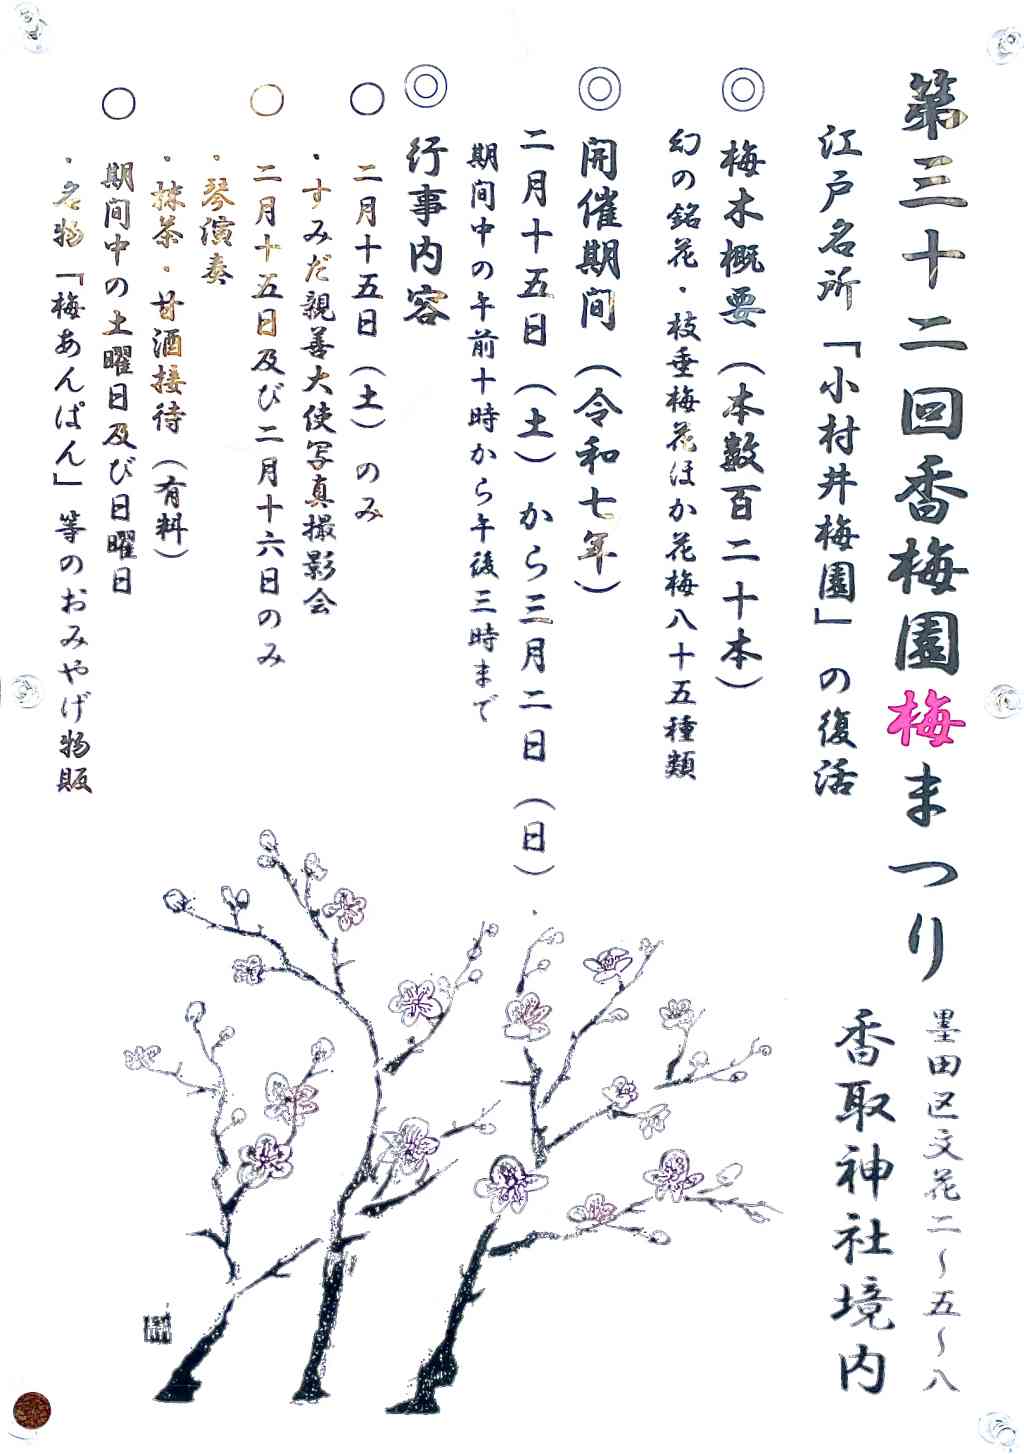 第三十二回香梅園梅まつり
墨田区文花二～五～八
香取神社境内
江戸名所「小村井梅園」の復活
◎ 梅木概要（本数百二十本）
幻の銘花・枝垂梅花ほか花梅八十五種類
◎ 開催期間（令和七年）
二月十五日（土）から三月二日（日）
期間中の午前十時から午後三時まで
◎ 行事内容
○ 二月十五日（土）のみ
・すみだ親善大使写真撮影会
○ 二月十五日及び二月十六日のみ
・琴演奏
・抹茶・甘酒接待（有料）
○ 期間中の土曜日及び日曜日
・名物「梅あんぱん」等のおみやげ物販